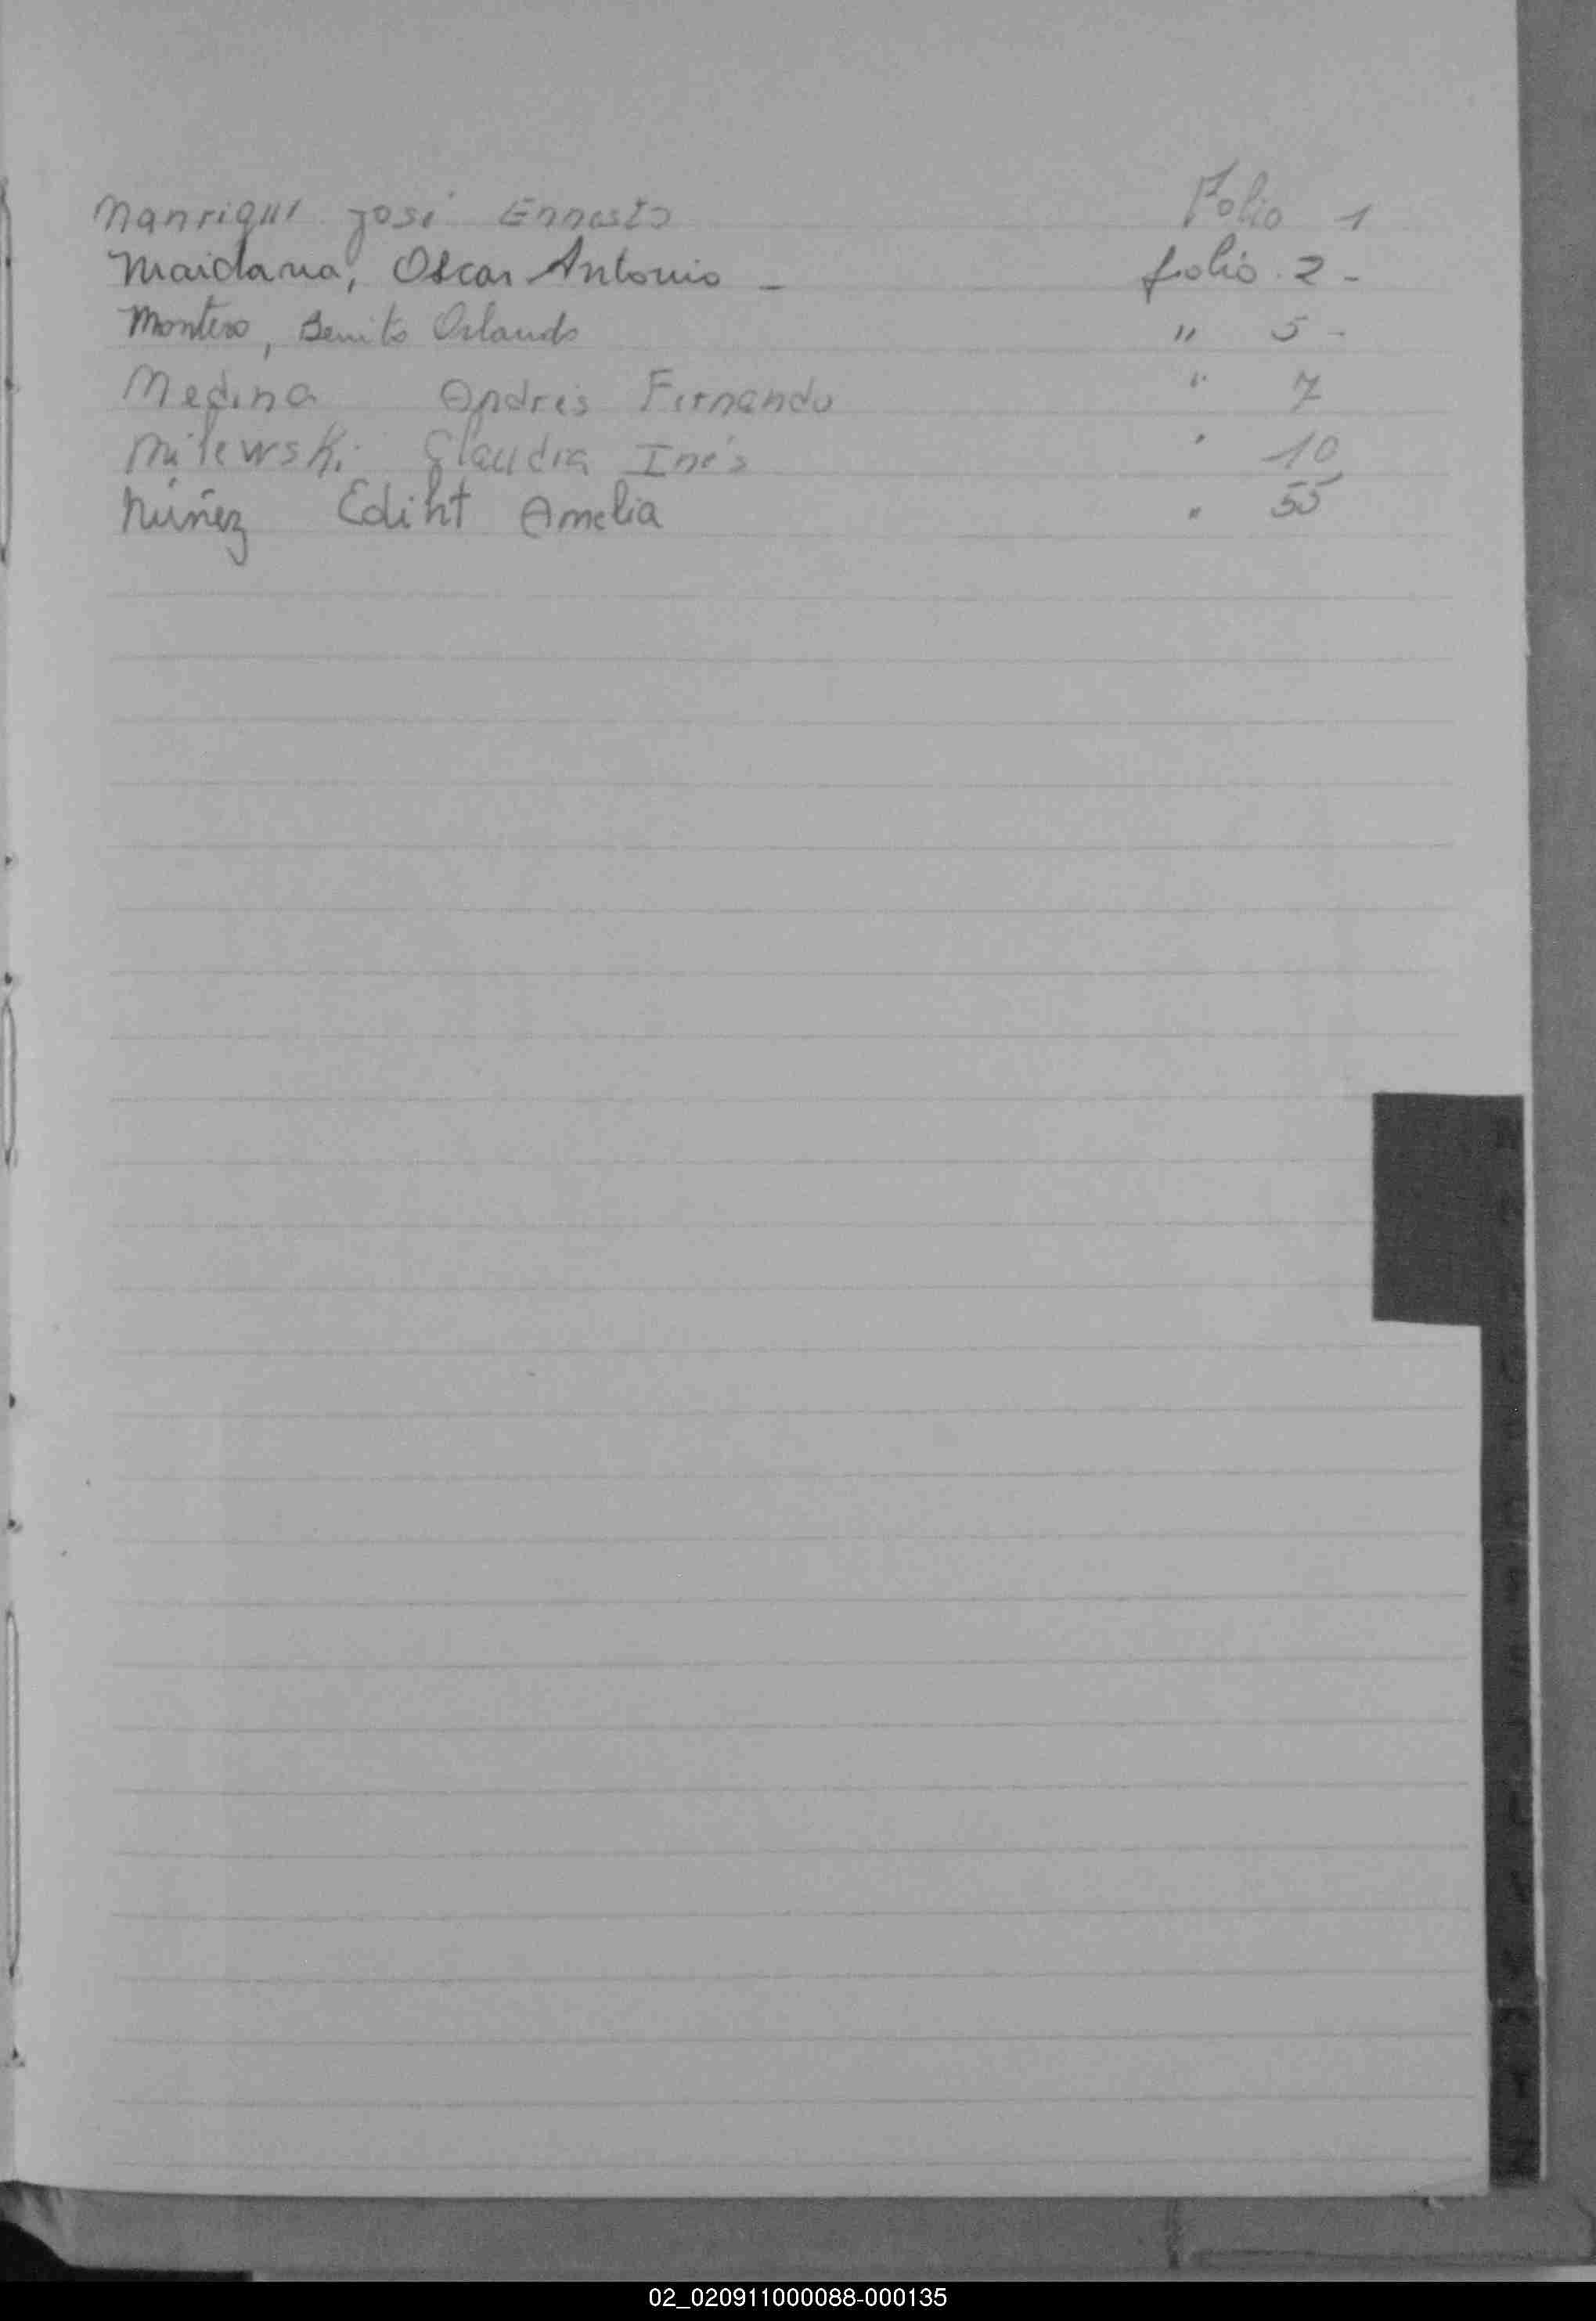 Manrique José Ernesto Folio 1
Maidana, Oscar Antonio - folio 2 -
Montero, Benito Orlando " 5 -
Medina Andrés Fernando " 7
Milewski Claudia Inés " 10
Núñez Ediht Amelia " 55
02_020911000088-000135